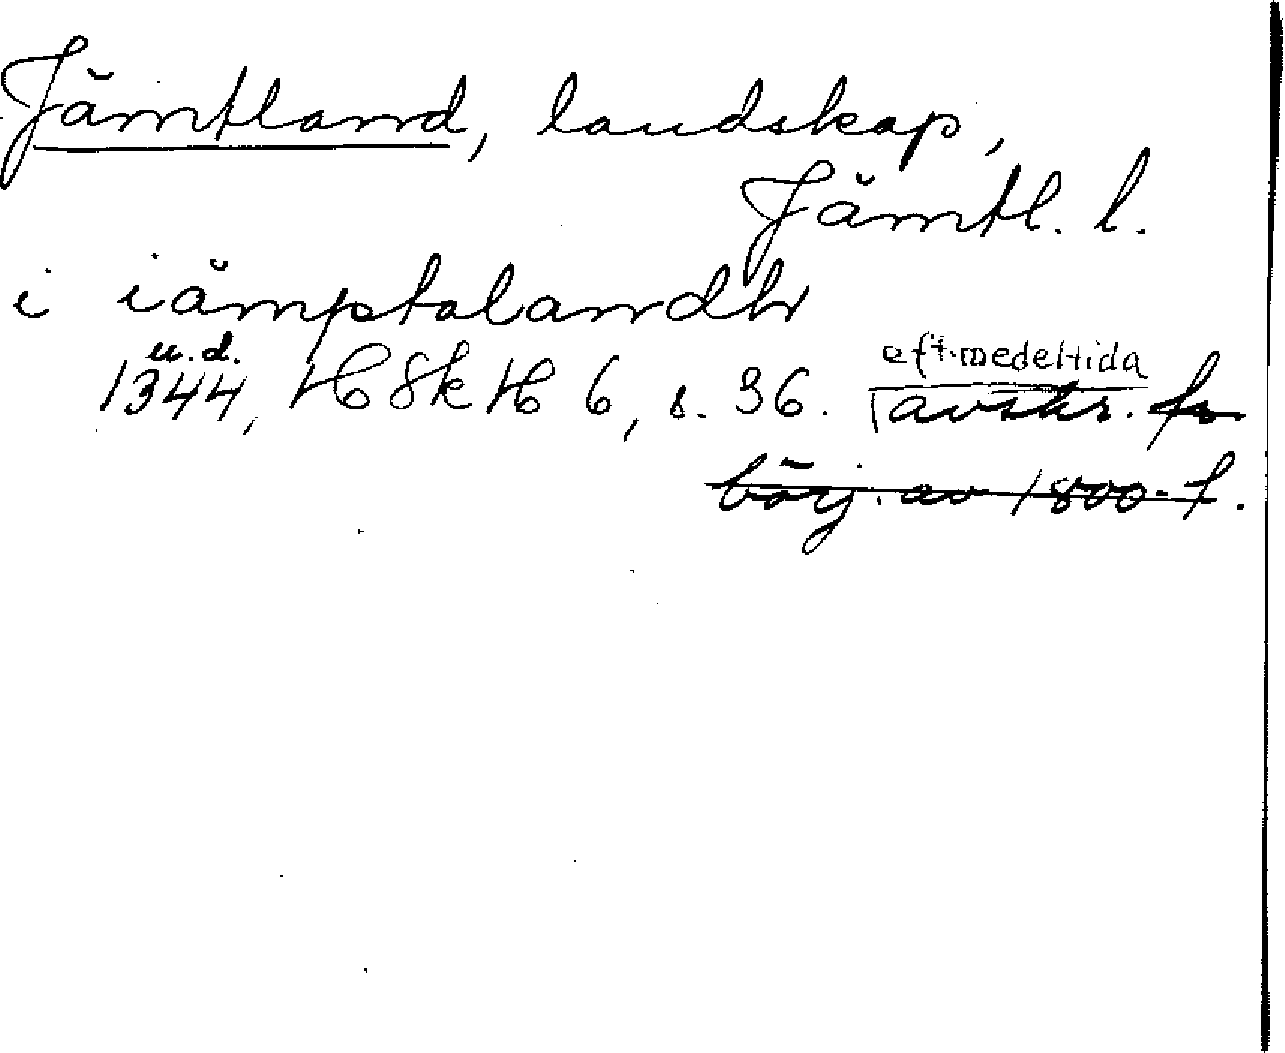 Jämtland, landskap,
Jämtl. l.
i iämptalandh
u.d.
1344, HSkH 6, s. 36.
eft.medeltida
avskr. fr
börj. av 1800-t.